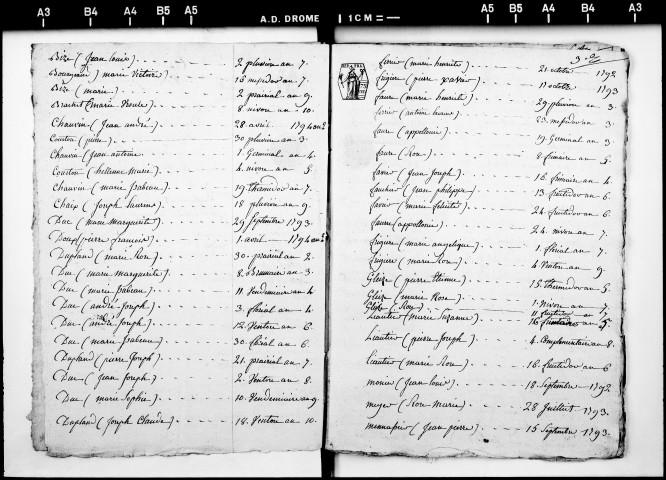 A3 B4 A4 B5 A5 A.D. DROME 1CM = A5 B5 A4 B4 A3
Bize (Jean louis) 2 pluviôn an 7.
marie Victoire 15 messidor an 7.
Bize (marie) 2 prairial an 9.
Brachet (marie Rose) 8 nivôn an 10.
Chauvin (Jean andré) 28 avril 1794 an 2
Courtou (pierre) 30 pluviôn an 3.
Chauvin (Jean antoine 1 Germinal an 4.
Courtou (hellenne Marie) 4 nivôn an 5.
Chauvin (marie françoise) 19 thermidor an 7.
Chaix (Joseph laurens) 18 pluviôn an 9.
Duc (marie marguerite) 29 Septembre 1793.
pierre françois) 1 avril 1794 an 2
Dupland (marie Rose) 30 prairial an 2.
Duc (marie marguerite) 8 Brumaire an 3.
Duc (marie 11 Vendemiaire an 4
Duc (andré Joseph) 3 floréal an 4
Duc (andré Joseph) 12 Ventôn an 6.
Duc (marie 30 floréal an 6.
Dupland (pierre Joseph) 21 prairial an 7.
Duc (Jean Joseph) 2 Ventôn an 8.
Duc (marie Sophie) 10 Vendemiaire an 9.
Dupland (Joseph Claude) 18 Ventôn an 10.
3.e
(marie henriette) 21 octobre 1792
frigière (pierre xavier) 17 octobre 1793
faure (marie henriette) 29 pluviôn an 3.
23 messidor an 3.
faure (appollonie) 19 Germinal an 3.
faure (Rose) 8 frimaire an 5.
favier (Jean Joseph) 16 frimaire an 4.
(Jean philippe) 13 fructidor an 6.
favier (marie félicité) 24 fructidor an 6.
faure (appollonie) 24 nivôn an 7.
frigière (marie angelique) 1 floréal an 7.
frigière (marie Rose) 4 Ventôn an 9
Glèize (pierre Etienne) 15 thermidor an 5.
Glèize (marie Rose) 1 Nivôn an 7.
Glèize (Rose) 11 an 7
Lieautier (marie Suzanne) 16 fructidor an 5.
Lieautier (pierre Joseph) 4 Complementaire an 8.
Lieautier (marie Rose) 16 fructidor an 6
monier (Jean louis) 18 Septembre 1792
meyer (Rose Marie) 28 Juillet 1793.
(Jean pierre) 15 Septembre 1793.